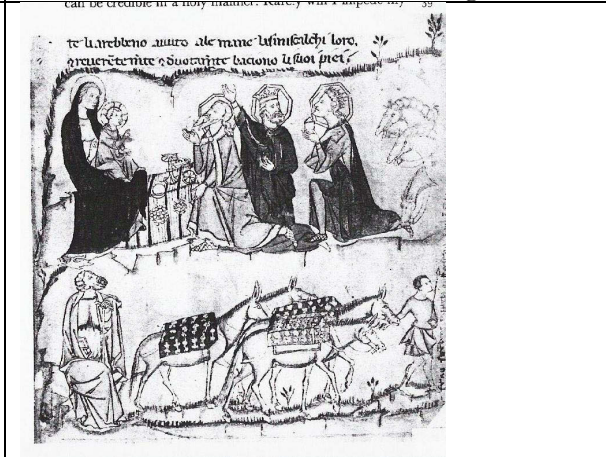 can be credible in a holy manner. Rarely will I impede my 39
te li arebbeno auuto ale mane li siniscalchi loro.
⁊ reuerẽtemẽte ⁊ duotamẽte baciono li suoi piei.